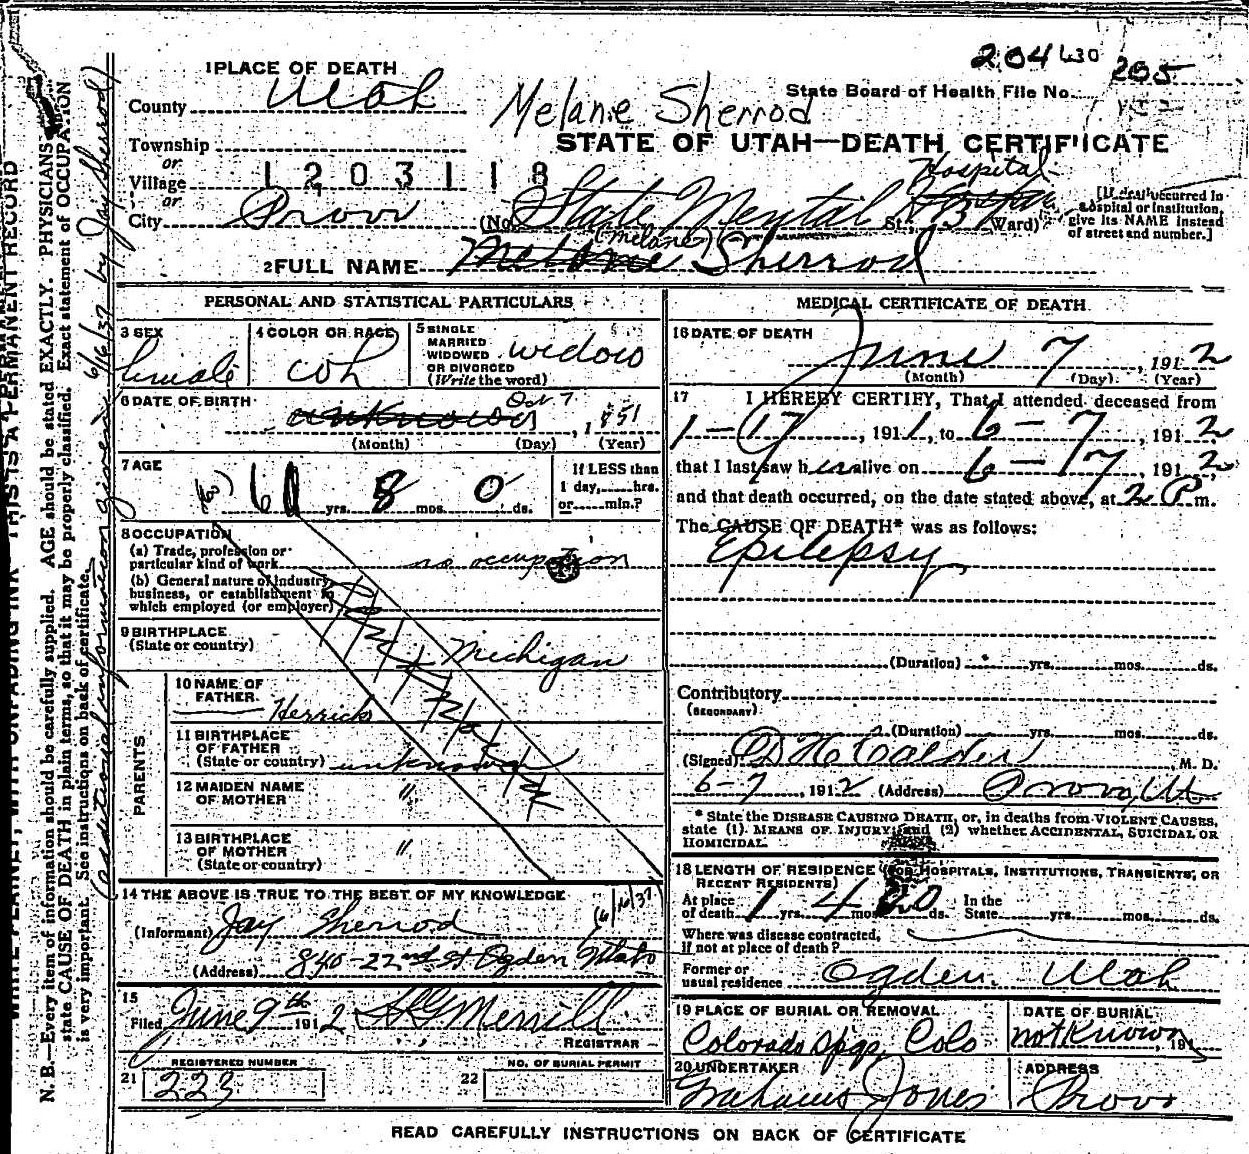 204 630 205
1 PLACE OF DEATH
County Utah
Melanie Sherrod
State Board of Health File No.
STATE OF UTAH—DEATH CERTIFICATE
Township
or
Village
1203118
or
City Provo (No. State Mental Hospital St., Ward)
[If death occurred in
a hospital or institution,
give its NAME instead
of street and number.]
2 FULL NAME (Melanie) Sherrod
PERSONAL AND STATISTICAL PARTICULARS
3 SEX female
4 COLOR OR RACE wh
5 SINGLE
MARRIED
WIDOWED
OR DIVORCED
(Write the word)
widow
6 DATE OF BIRTH
unknown Oct 7, 1851
(Month) (Day) (Year)
7 AGE
(60) 60 yrs. 8 mos. 0 ds.
If LESS than
1 day, hrs.
or min.?
8 OCCUPATION
(a) Trade, profession or
particular kind of work no occupation
(b) General nature of industry,
business, or establishment in
which employed (or employer)
9 BIRTHPLACE
(State or country) Michigan
PARENTS
10 NAME OF
FATHER Herrick
11 BIRTHPLACE
OF FATHER
(State or country) unknown
12 MAIDEN NAME
OF MOTHER "
13 BIRTHPLACE
OF MOTHER
(State or country) "
14 THE ABOVE IS TRUE TO THE BEST OF MY KNOWLEDGE
(Informant) Jay Sherrod (6/16/37)
(Address) 840-22nd St Ogden Utah
15
Filed June 9th 1912 Merrill
REGISTRAR
REGISTERED NUMBER
21 223
NO. OF BURIAL PERMIT
22
MEDICAL CERTIFICATE OF DEATH
16 DATE OF DEATH
June 7, 1912
(Month) (Day) (Year)
17 I HEREBY CERTIFY, That I attended deceased from
1-17, 1911, to 6-7, 1912
that I last saw her alive on 6-7, 1912,
and that death occurred, on the date stated above, at 2 P m.
The CAUSE OF DEATH* was as follows:
Epilepsy
(Duration) yrs. mos. ds.
Contributory
(SECONDARY)
(Duration) yrs. mos. ds.
(Signed) D H Calder, M. D.
6-7, 1912 (Address) Provo, Ut
* State the DISEASE CAUSING DEATH, or, in deaths from VIOLENT CAUSES,
state (1) MEANS OF INJURY; and (2) whether ACCIDENTAL, SUICIDAL OR
HOMICIDAL.
18 LENGTH OF RESIDENCE (FOR HOSPITALS, INSTITUTIONS, TRANSIENTS, OR
RECENT RESIDENTS)
At place
of death 1 yrs. 4 mos. 20 ds.
In the
State yrs. mos. ds.
Where was disease contracted,
if not at place of death?
Former or
usual residence Ogden. Utah
19 PLACE OF BURIAL OR REMOVAL
Colorado Spgs, Colo
DATE OF BURIAL
not known, 191
20 UNDERTAKER
Jones
ADDRESS
Provo
READ CAREFULLY INSTRUCTIONS ON BACK OF CERTIFICATE
WRITE PLAINLY, WITH UNFADING INK—THIS IS A PERMANENT RECORD
N. B.—Every item of information should be carefully supplied. AGE should be stated EXACTLY. PHYSICIANS
state CAUSE OF DEATH in plain terms, so that it may be properly classified. Exact statement of OCCUPATION
is very important. See instructions on back of certificate.
(additional information given 6/16/37 by Jay Sherrod)